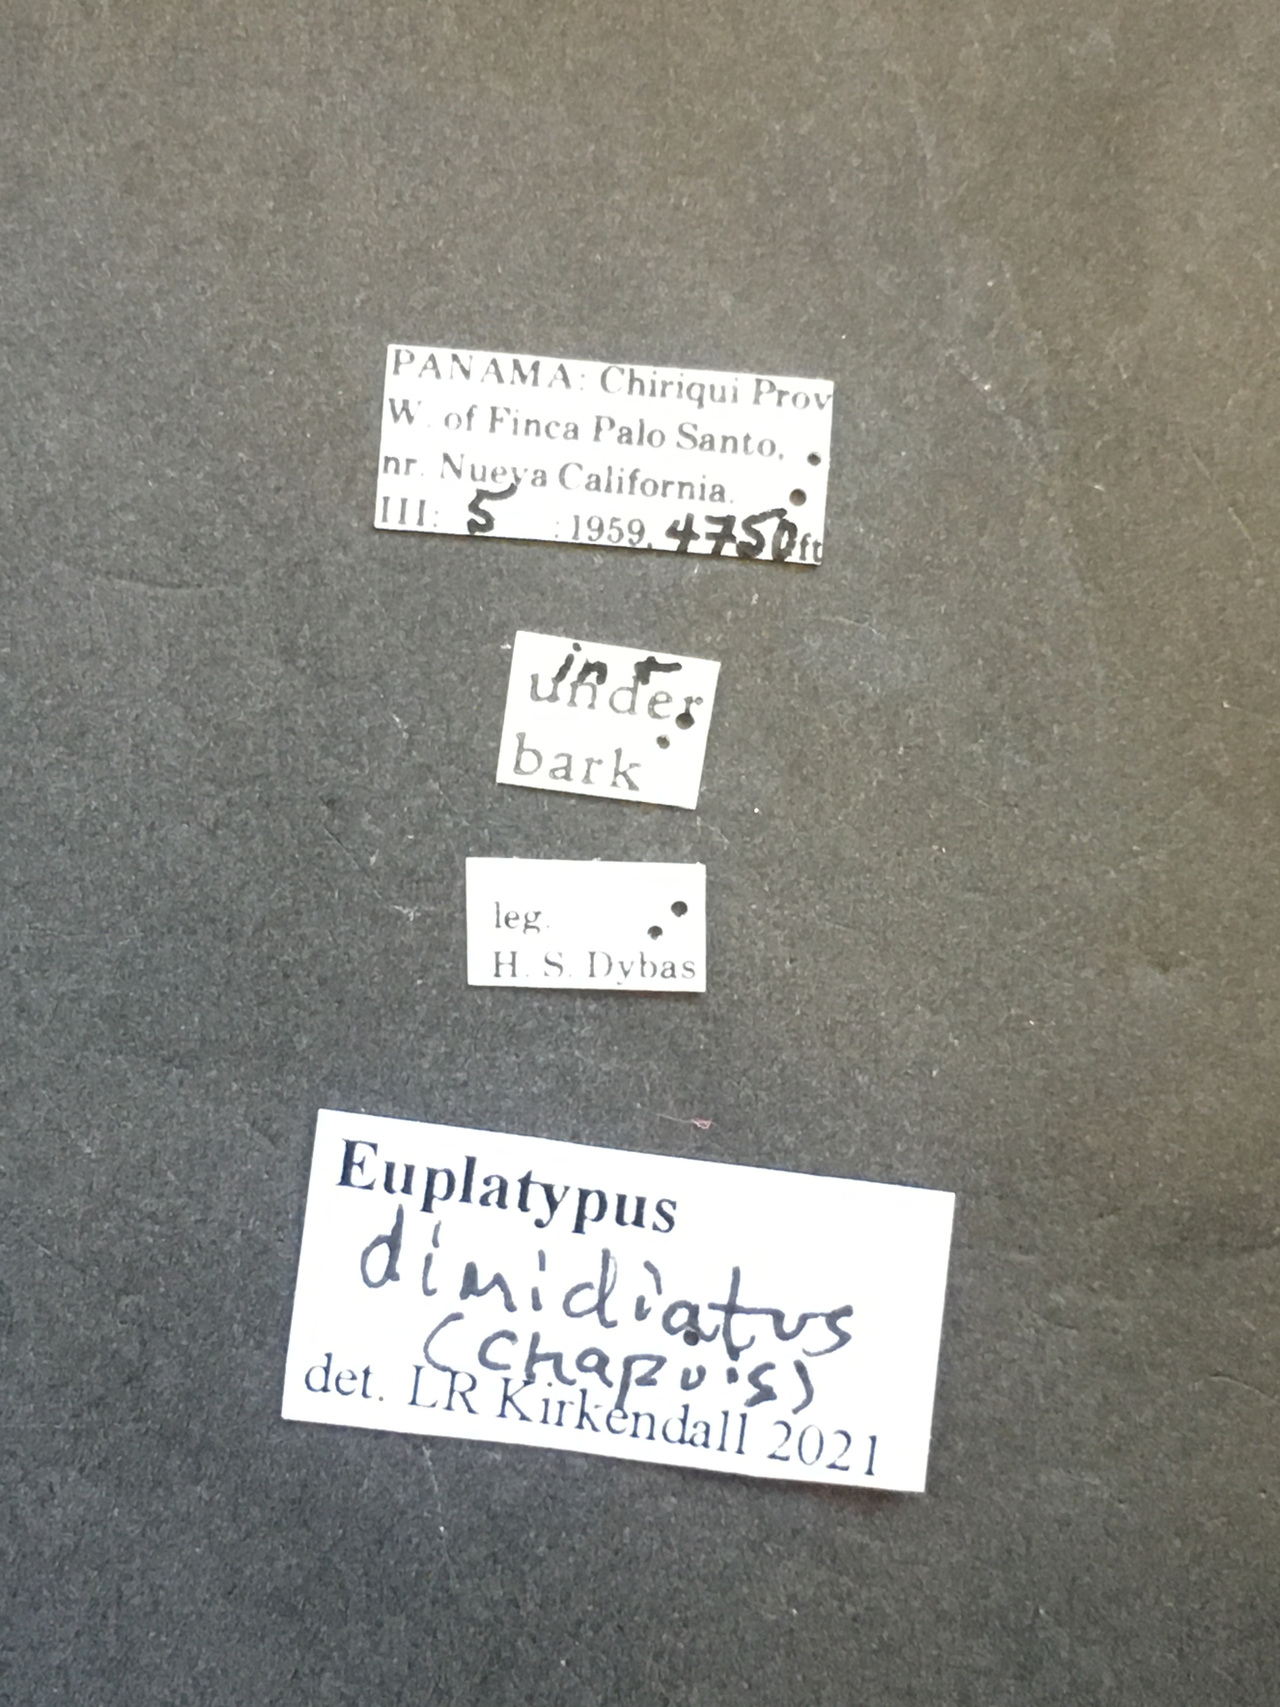 PANAMA: Chiriqui Prov
W. of Finca Palo Santo,
nr. Nueva California.
III: 5 :1959, 4750ft
in +
under
bark
leg.
H. S. Dybas
Euplatypus
dimidiatus
(Chapuis)
det. LR Kirkendall 2021